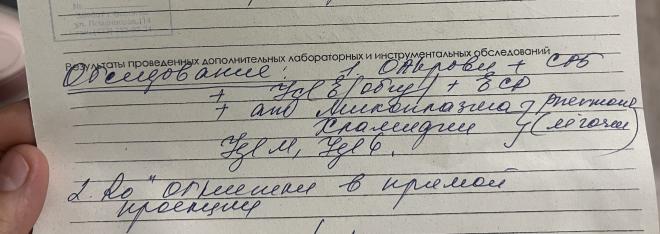 ул. Ломоносова, 114
Результаты проведенных дополнительных лабораторных и инструментальных обследований
Обследование: 1. ОАКрови + СРБ
+ IgE (общ) + ECP
+ ант Микоплазма pneumon
Хламидии (лёгочн)
IgM, IgG.
2. Ro" ОГКлетки в прямой
проекции